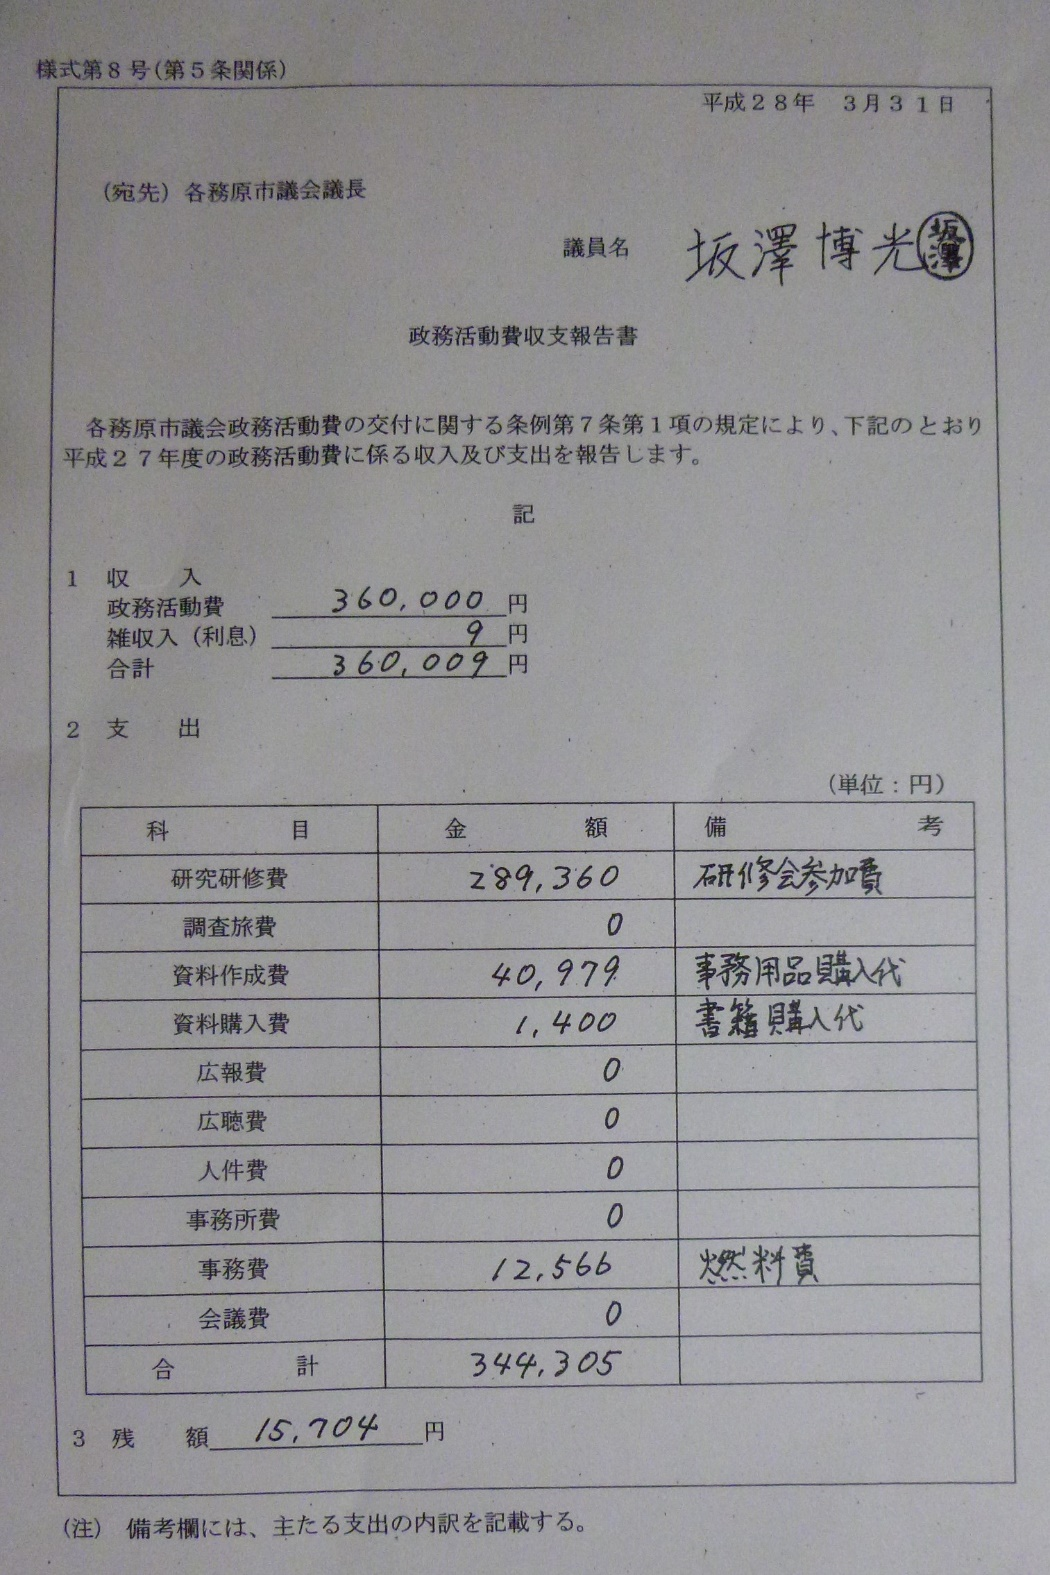 様式第8号(第5条関係)
平成28年 3月31日
(宛先) 各務原市議会議長
議員名 坂澤博光 坂澤
政務活動費収支報告書
各務原市議会政務活動費の交付に関する条例第7条第1項の規定により、下記のとおり
平成27年度の政務活動費に係る収入及び支出を報告します。
記
1 収 入
政務活動費 360,000 円
雑収入(利息) 9 円
合計 360,009 円
2 支 出
(単位:円)
科 目 金 額 備 考
研究研修費 289,360 研修会参加費
調査旅費 0
資料作成費 40,979 事務用品購入代
資料購入費 1,400 書籍購入代
広報費 0
広聴費 0
人件費 0
事務所費 0
事務費 12,566 燃料費
会議費 0
合 計 344,305
3 残 額 15,704 円
(注) 備考欄には、主たる支出の内訳を記載する。